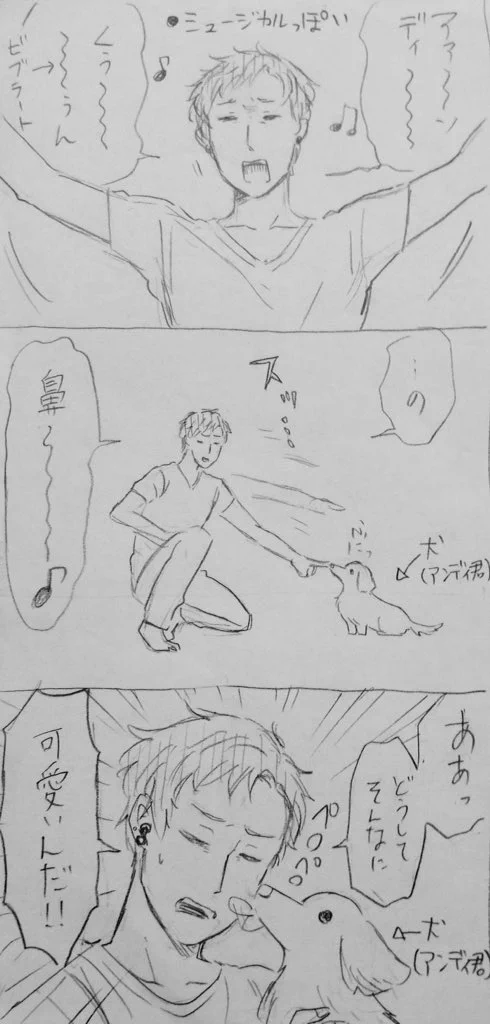 ●ミュージカルっぽい
アァ〜〜ン
ディ〜〜〜
くぅ〜〜
〜〜ぅん
→
ビブラート
…の
スッ…
鼻〜〜〜♪
犬
(アンディ君)
ああっ
どうして
そんなに
ペロペロ
可愛いんだ!!
犬
(アンディ君)